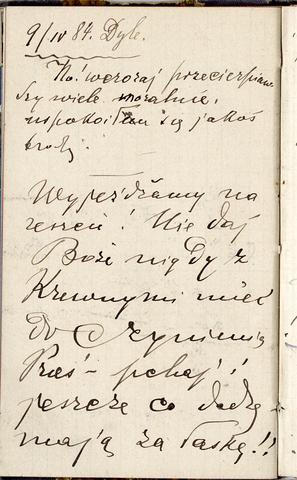 9/IV 84. Dyle.
No! wczoraj przecierpiaw-
szy wiele moralnie,
uspokoiłem się jakoś
Wyjeżdżamy na
reszcie! Nie daj
Boże nigdy z
Krewnymi mieć
do czynienia
Proś - pchaj!
jeszcze co dadzą
mają za łaskę!!